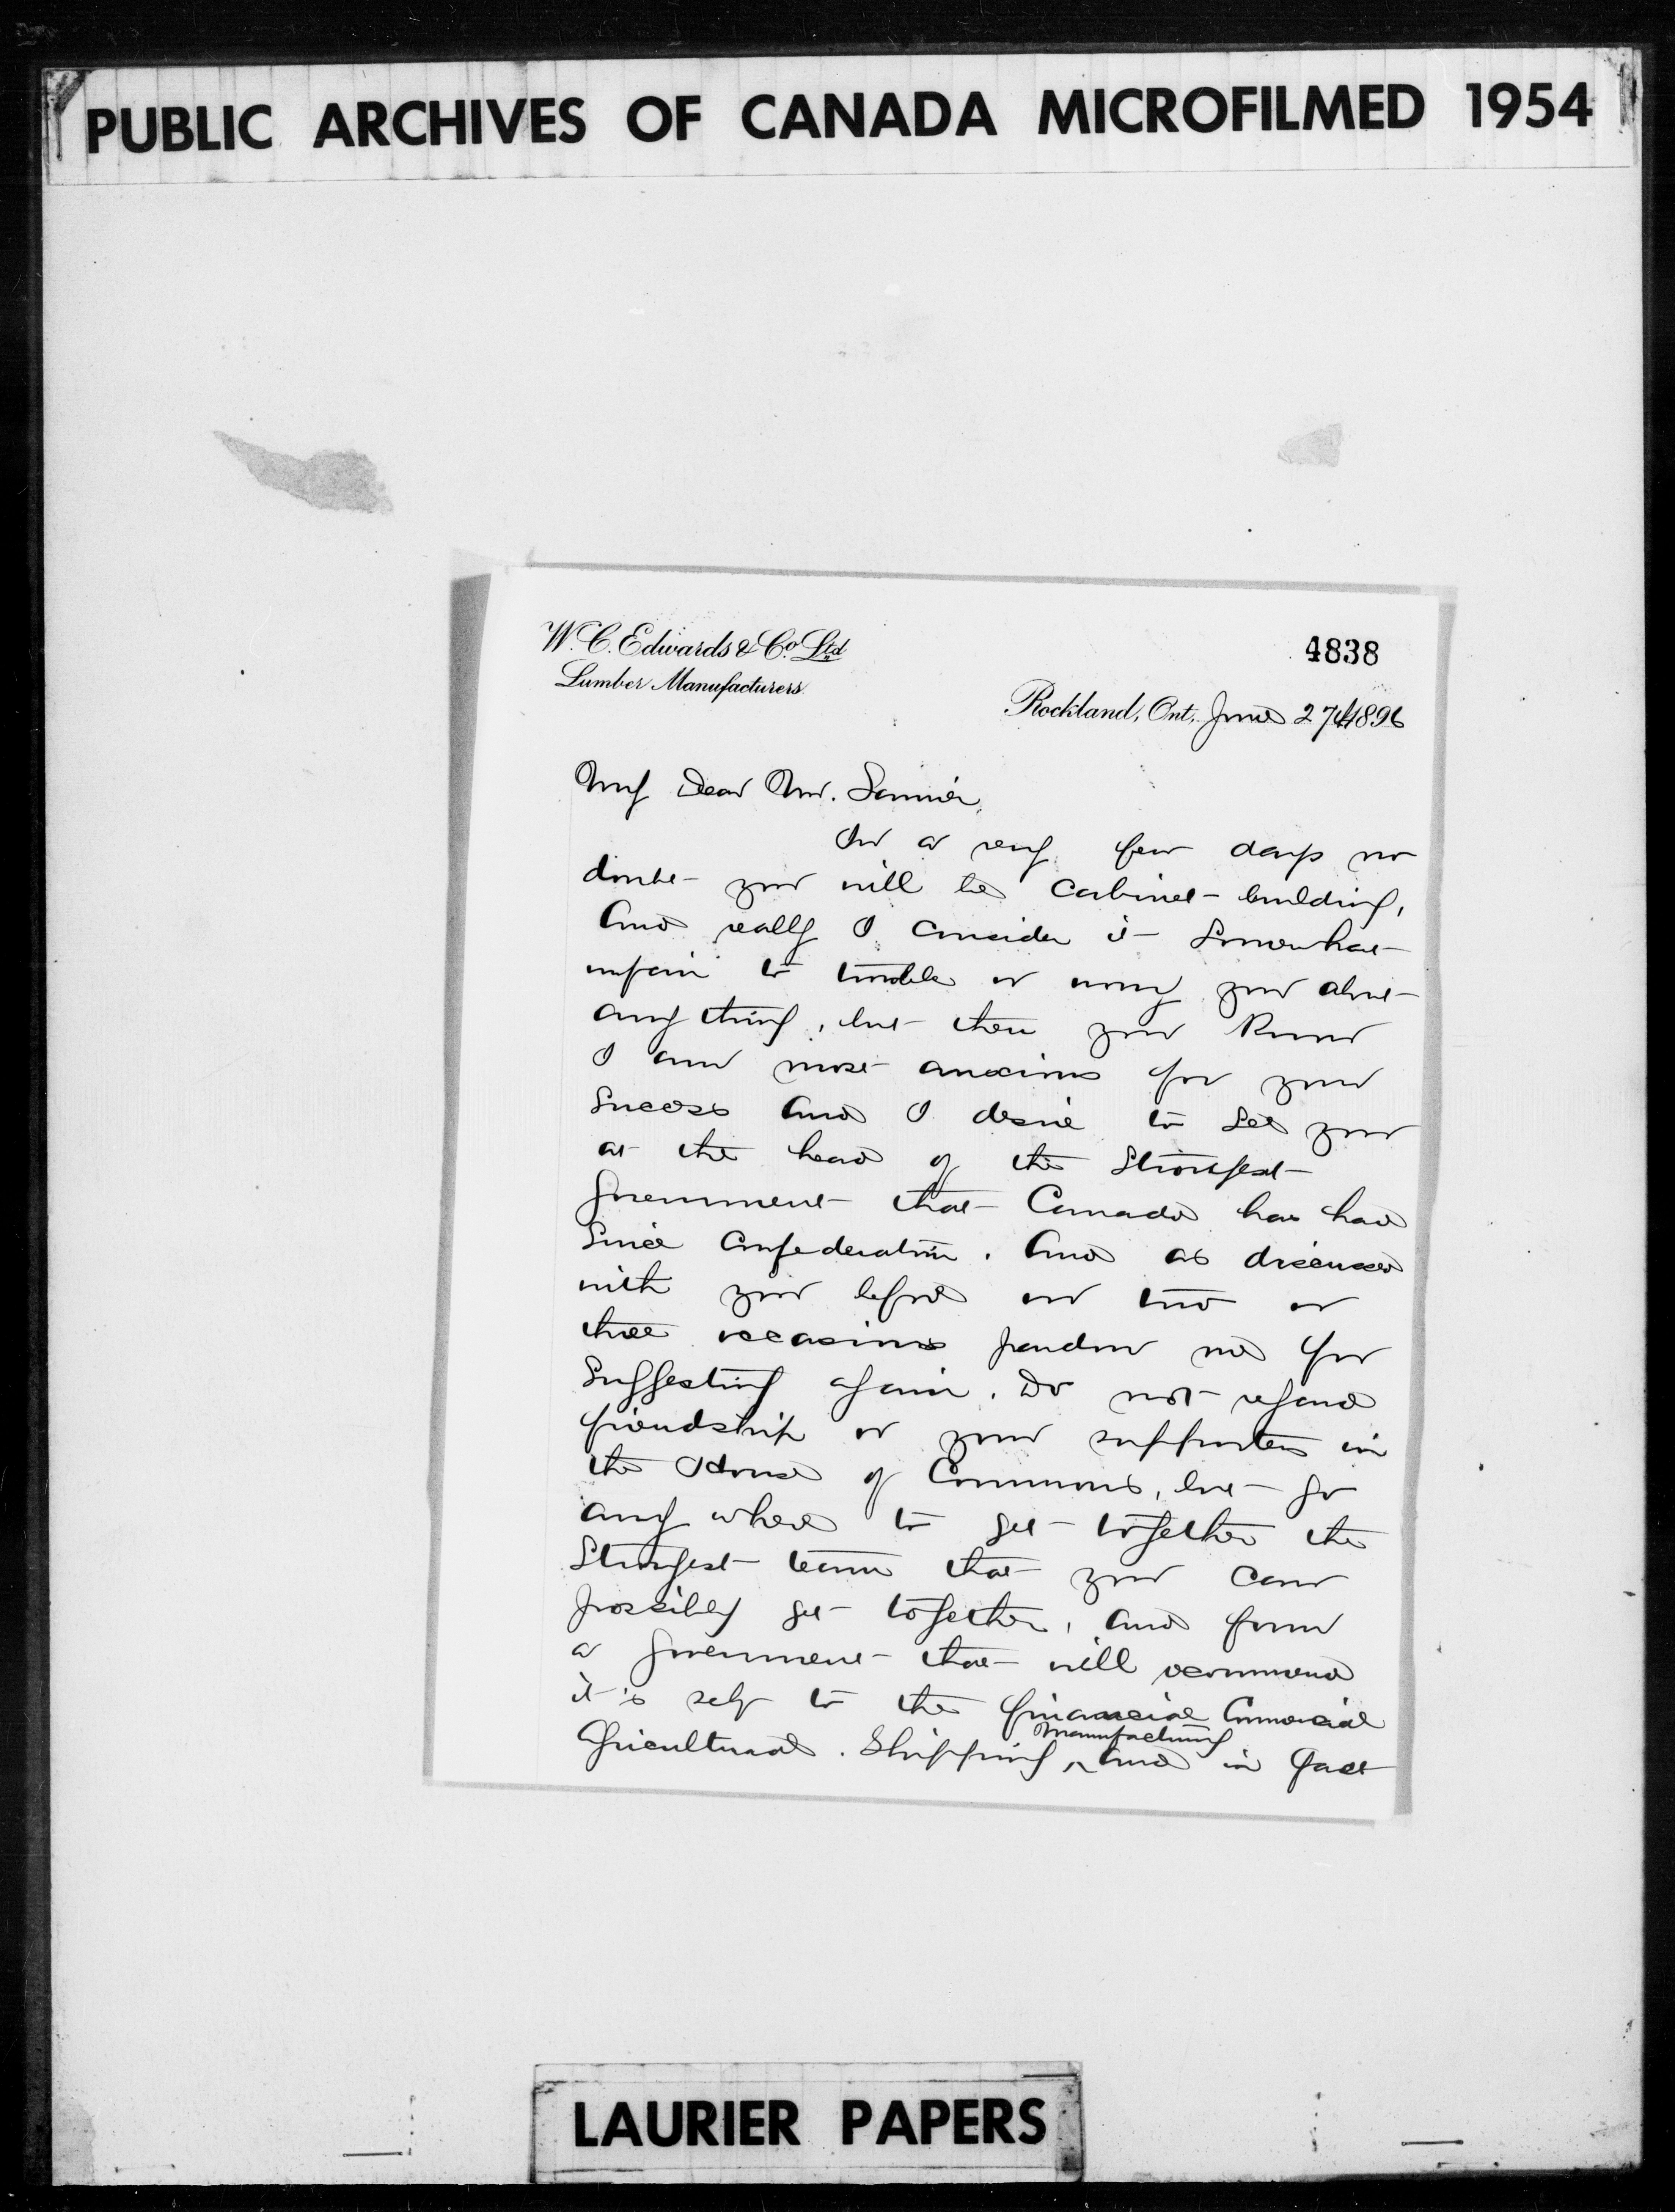 PUBLIC ARCHIVES OF CANADA MICROFILMED 1954
W. C. Edwards & Co. Ltd
Lumber Manufacturers.
4838
Rockland, Ont, June 27th 1896
My Dear Mr. Laurier,
In a very few days no
doubt you will be cabinet building,
And really I consider it Somewhat
unfair to trouble or worry you about
any thing, but then you Know
I am most anxious for your
Success And I desire to See you
at the head of the Strongest
Government that Canada has had
Since Confederation. And as discussed
with you before on two or
three occasions pardon me for
Suggesting again. Do not regard
friendship or your supporters in
the House of Commons, but go
any where to get together the
Strongest team that you can
possibly get together, And form
a Government that will recommend
it's self to the financial Commercial
Agricultural. Shipping, Manufacturing And in fact
LAURIER PAPERS